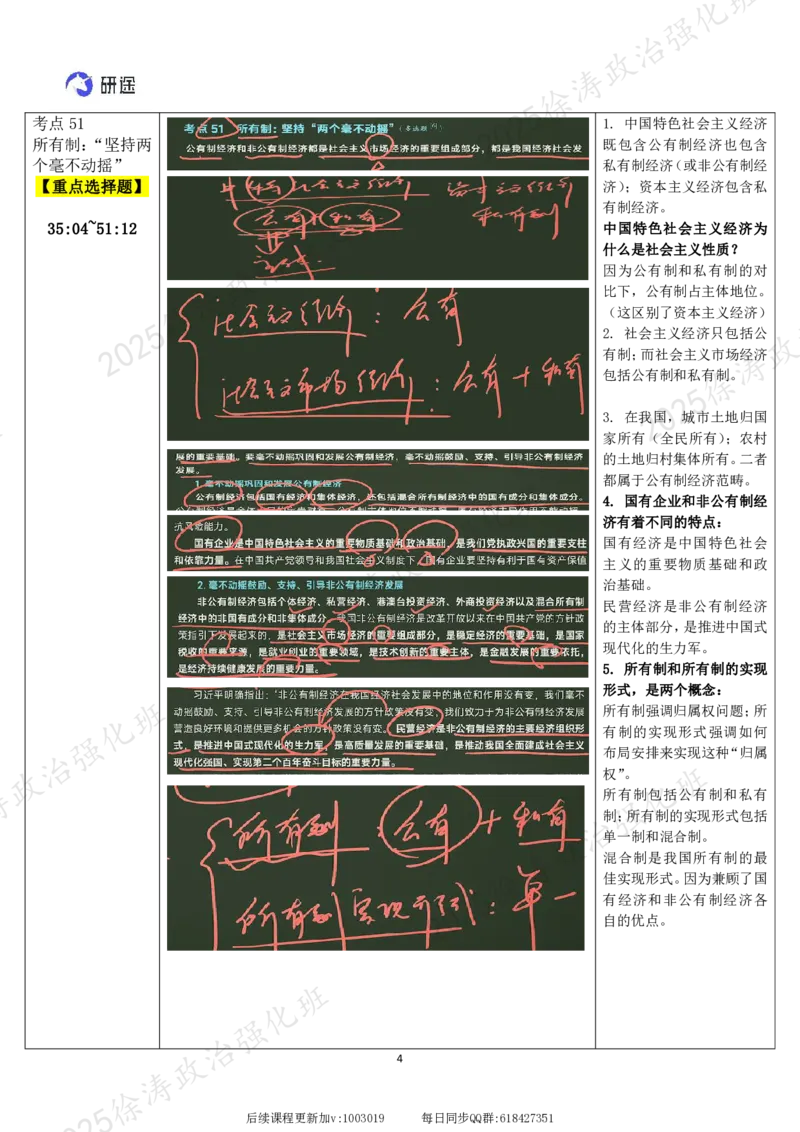 研途
考点 51
所有制：“坚持两
个毫不动摇”
【重点选择题】
35:04~51:12
考点 51 所有制：坚持“两个毫不动摇”（多选题
公有制经济和非公有制经济都是社会主义市场经济的重要组成部分，都是我国经济社会发
公有+私有
私有制
社会主义经济：公有
社会主义市场经济：公有+私有
展的重要基础。要毫不动摇巩固和发展公有制经济，毫不动摇鼓励、支持、引导非公有制经济
发展。
1. 毫不动摇巩固和发展公有制经济
公有制经济包括国有经济和集体经济，还包括混合所有制经济中的国有成分和集体成分。
抗风险能力。
国有企业是中国特色社会主义的重要物质基础和政治基础，是我们党执政兴国的重要支柱
和依靠力量。在中国共产党领导和我国社会主义制度下，国有企业要坚持有利于国有资产保值
2. 毫不动摇鼓励、支持、引导非公有制经济发展
非公有制经济包括个体经济、私营经济、港澳台投资经济、外商投资经济以及混合所有制
经济中的非国有成分和非集体成分。我国非公有制经济是改革开放以来在中国共产党的方针政
策指引下发展起来的，是社会主义市场经济的重要组成部分，是稳定经济的重要基础，是国家
税收的重要来源，是就业创业的重要领域，是技术创新的重要主体，是金融发展的重要依托，
是经济持续健康发展的重要力量。
习近平明确指出：“非公有制经济在我国经济社会发展中的地位和作用没有变，我们毫不
动摇鼓励、支持、引导非公有制经济发展的方针政策没有变，我们致力于为非公有制经济发展
营造良好环境和提供更多机会的方针政策没有变。民营经济是非公有制经济的主要经济组织形
式，是推进中国式现代化的生力军，是高质量发展的重要基础，是推动我国全面建成社会主义
现代化强国、实现第二个百年奋斗目标的重要力量。
所有制：公有+私有
所有制实现形式：单一
1. 中国特色社会主义经济
既包含公有制经济也包含
私有制经济（或非公有制经
济）；资本主义经济包含私
有制经济。
中国特色社会主义经济为
什么是社会主义性质？
因为公有制和私有制的对
比下，公有制占主体地位。
（这区别了资本主义经济）
2. 社会主义经济只包括公
有制；而社会主义市场经济
包括公有制和私有制。
3. 在我国，城市土地归国
家所有（全民所有）；农村
的土地归村集体所有。二者
都属于公有制经济范畴。
4. 国有企业和非公有制经
济有着不同的特点：
国有经济是中国特色社会
主义的重要物质基础和政
治基础。
民营经济是非公有制经济
的主体部分，是推进中国式
现代化的生力军。
5. 所有制和所有制的实现
形式，是两个概念：
所有制强调归属权问题；所
有制的实现形式强调如何
布局安排来实现这种“归属
权”。
所有制包括公有制和私有
制；所有制的实现形式包括
单一制和混合制。
混合制是我国所有制的最
佳实现形式。因为兼顾了国
有经济和非公有制经济各
自的优点。
4
后续课程更新加v:1003019 每日同步QQ群:618427351
2025徐涛政治强化班